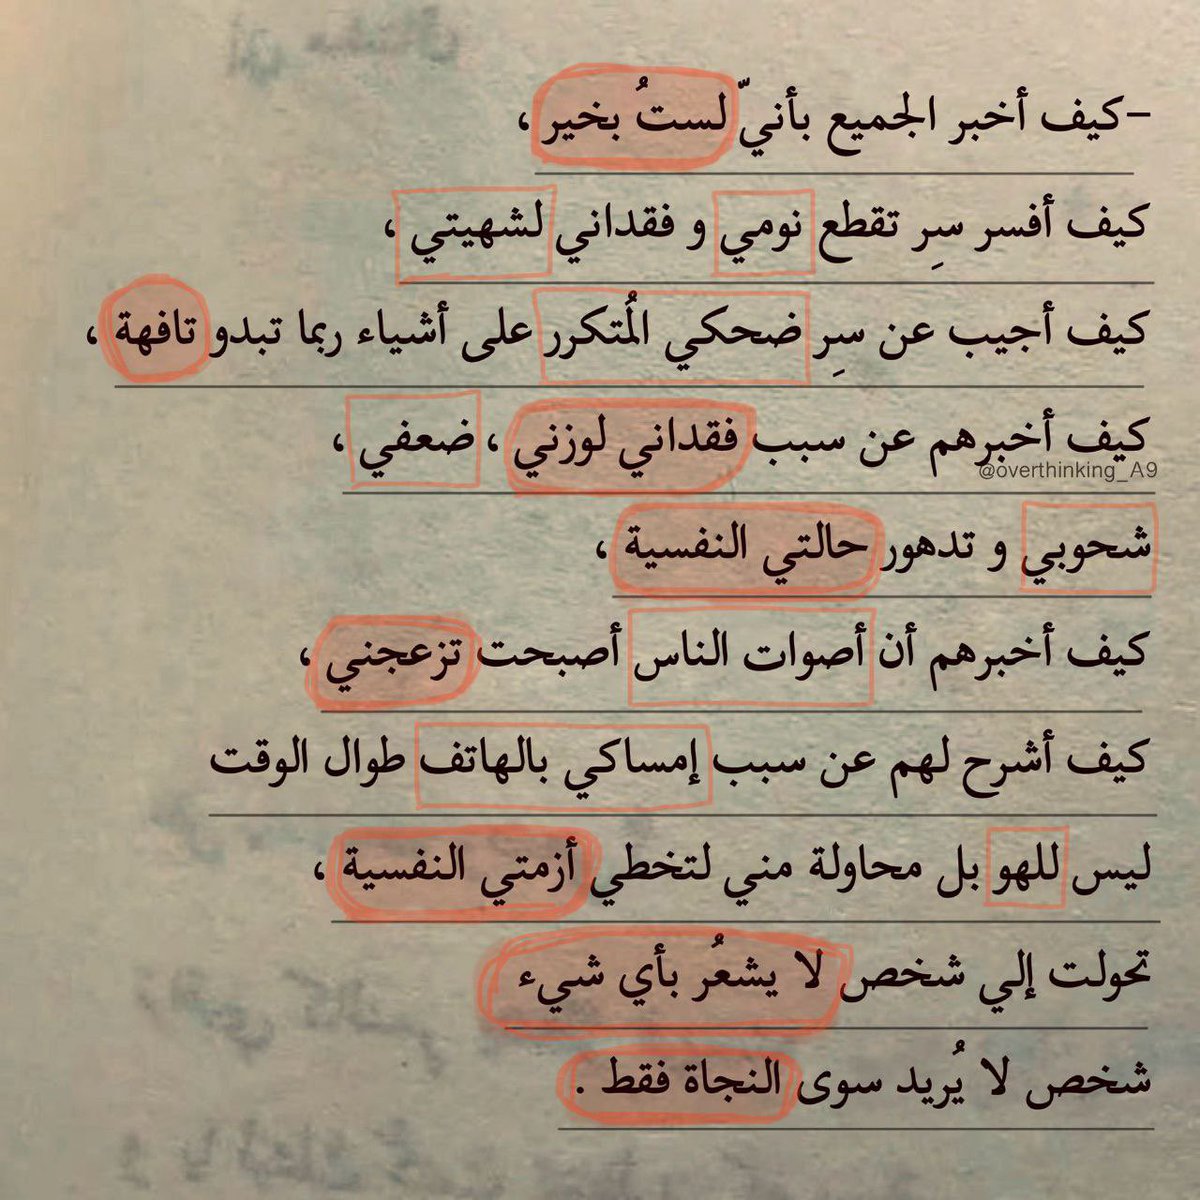 –كيف أخبر الجميع بأنيّ لستُ بخير ،
كيف أفسر سِر تقطع نومي و فقداني لشهيتي ،
كيف أجيب عن سِر ضحكي المُتكرر على أشياء ربما تبدو تافهة ،
كيف أخبرهم عن سبب فقداني لوزني ، ضعفي ،
@overthinking_A9
شحوبي و تدهور حالتي النفسية ،
كيف أخبرهم أن أصوات الناس أصبحت تزعجني ،
كيف أشرح لهم عن سبب إمساكي بالهاتف طوال الوقت
ليس للهو بل محاولة مني لتخطي أزمتي النفسية ،
تحولت إلي شخص لا يشعُر بأي شيء
شخص لا يُريد سوى النجاة فقط .